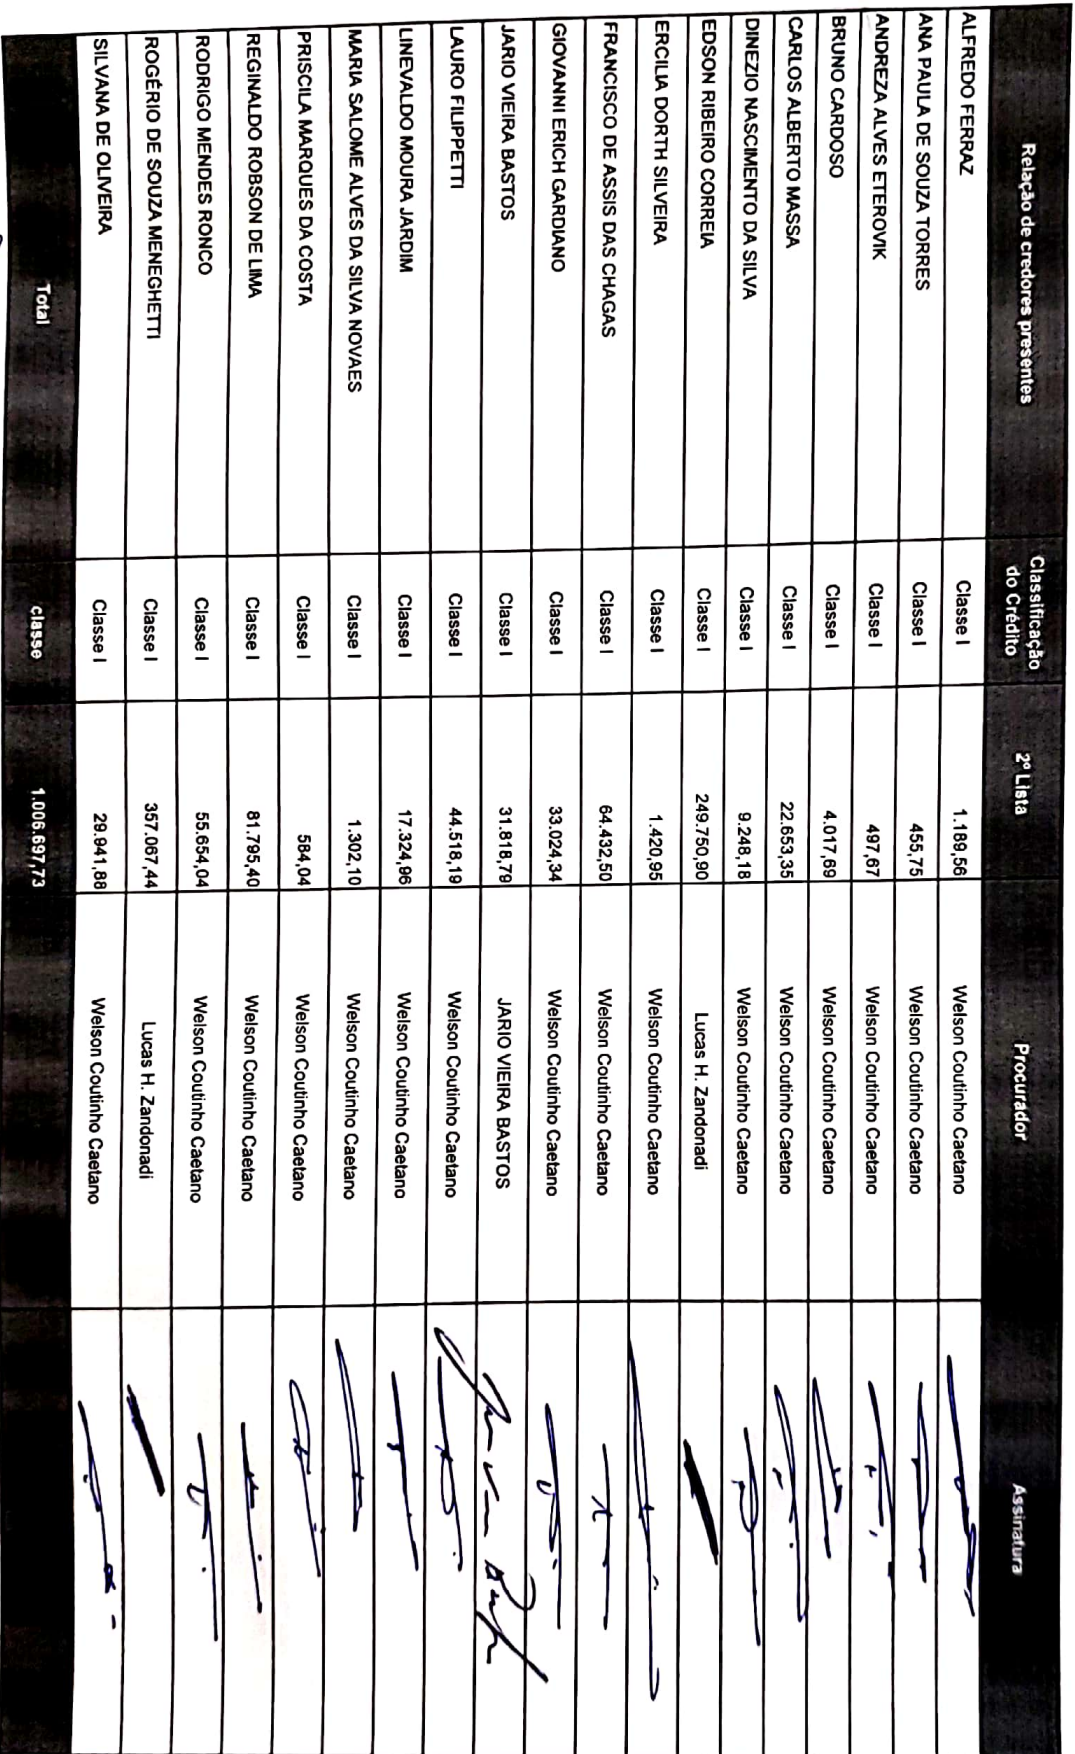 Relação de credores presentes Classificação do Crédito 2º Lista Procurador Assinatura
ALFREDO FERRAZ Classe I 1.189,56 Welson Coutinho Caetano
ANA PAULA DE SOUZA TORRES Classe I 455,75 Welson Coutinho Caetano
ANDREZA ALVES ETEROVIK Classe I 497,67 Welson Coutinho Caetano
BRUNO CARDOSO Classe I 4.017,69 Welson Coutinho Caetano
CARLOS ALBERTO MASSA Classe I 22.653,35 Welson Coutinho Caetano
DINEZIO NASCIMENTO DA SILVA Classe I 9.248,18 Welson Coutinho Caetano
EDSON RIBEIRO CORREIA Classe I 249.750,90 Lucas H. Zandonadi
ERCILIA DORTH SILVEIRA Classe I 1.420,95 Welson Coutinho Caetano
FRANCISCO DE ASSIS DAS CHAGAS Classe I 64.432,50 Welson Coutinho Caetano
GIOVANNI ERICH GARDIANO Classe I 33.024,34 Welson Coutinho Caetano
JARIO VIEIRA BASTOS Classe I 31.818,79 JARIO VIEIRA BASTOS
LAURO FILIPPETTI Classe I 44.518,19 Welson Coutinho Caetano
LINEVALDO MOURA JARDIM Classe I 17.324,96 Welson Coutinho Caetano
MARIA SALOME ALVES DA SILVA NOVAES Classe I 1.302,10 Welson Coutinho Caetano
PRISCILA MARQUES DA COSTA Classe I 584,04 Welson Coutinho Caetano
REGINALDO ROBSON DE LIMA Classe I 81.795,40 Welson Coutinho Caetano
RODRIGO MENDES RONCO Classe I 55.654,04 Welson Coutinho Caetano
ROGÉRIO DE SOUZA MENEGHETTI Classe I 357.067,44 Lucas H. Zandonadi
SILVANA DE OLIVEIRA Classe I 29.941,88 Welson Coutinho Caetano
Total classe 1.006.697,73